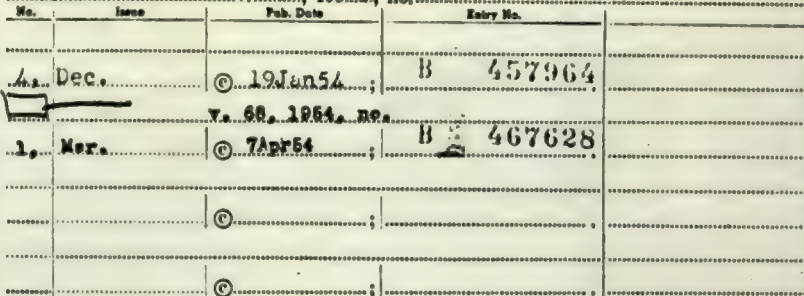 No. Issue Pub. Date Entry No.
4, Dec. © 19Jan54 ; B 457964
v. 68, 1954, no.
1, Mar. © 7Apr54 ; B 467628 .
© ; .
© ; .